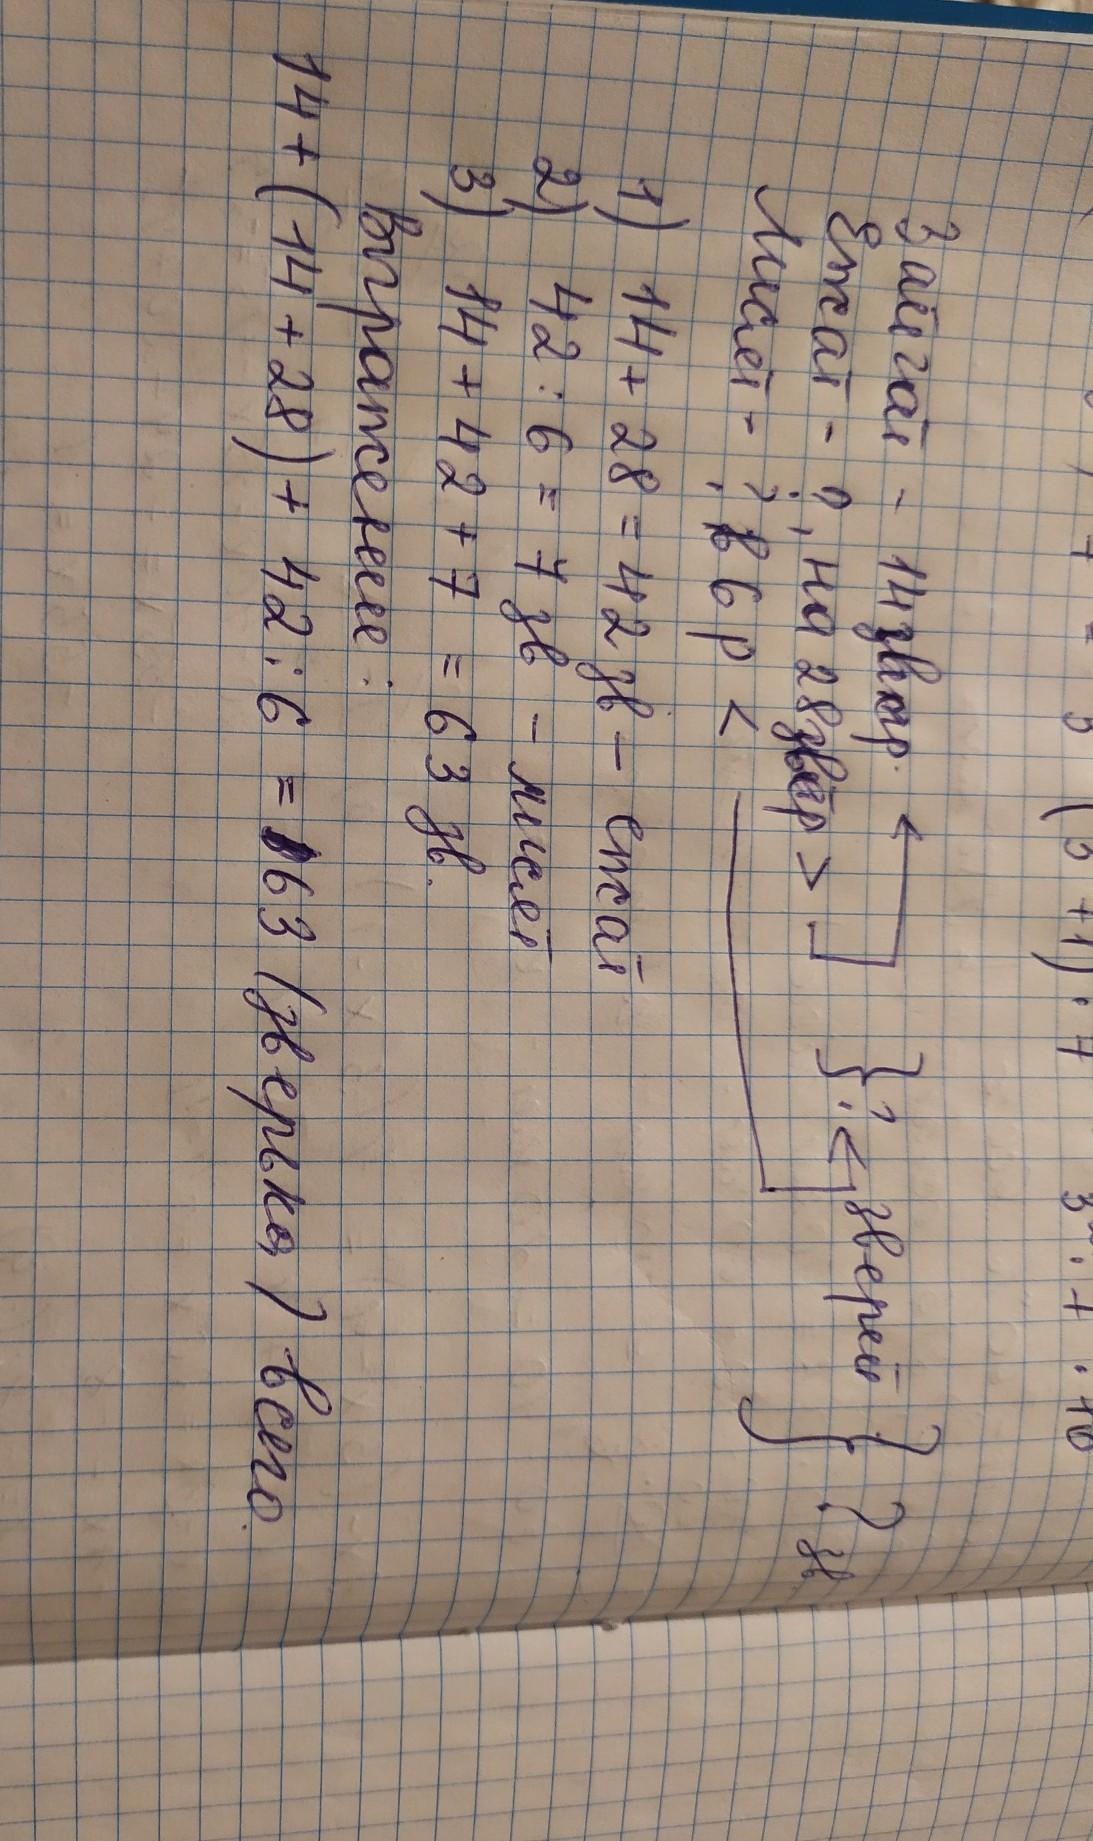 Зайгай - 14 звер.
Ежай - ?, на 28 звер >
Лисей - ? в 6 р < } ? < зверей } ? зв
1) 14 + 28 = 42 зв - ежай
2) 42 : 6 = 7 зв - лисей
3) 14 + 42 + 7 = 63 зв.
Выражение:
14 + (14 + 28) + 42 : 6 = 63 (зверька) всего.